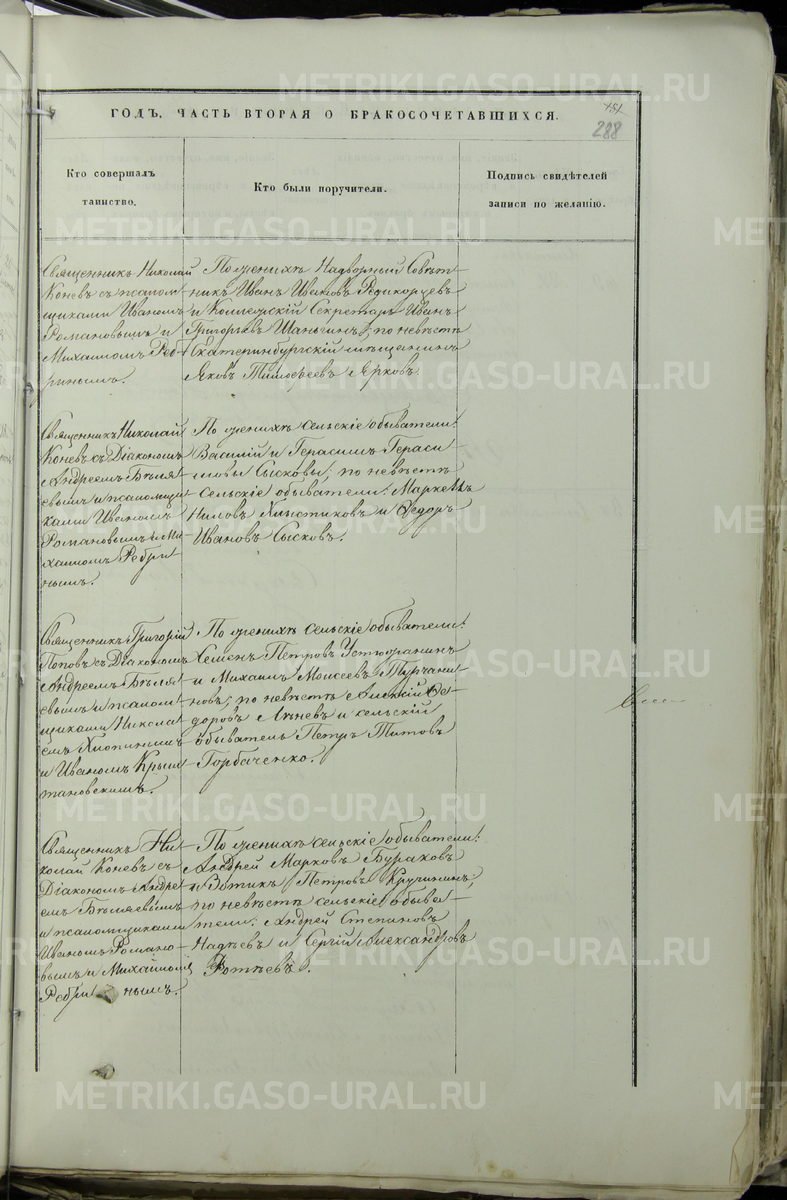 ГОДЪ. ЧАСТЬ ВТОРАЯ О БРАКОСОЧЕТАВШИХСЯ.
451
288
Кто совершалъ
таинство.
Кто были поручители.
Подпись свидѣтелей
записи по желанію.
Священникъ Николай
Коневъ съ псалом-
щиками Иваномъ
Романовымъ и
Михаиломъ Реб-
ринымъ.
По женихѣ Надворный Совѣт-
никъ Иванъ Ивановъ Редикорцевъ
и Коллежскій Секретарь Иванъ
Григорьевъ Шаньгинъ; по невѣстѣ
Екатеринбургскій мѣщанинъ
Яковъ Тимофеевъ Ярковъ.
Священникъ Николай
Коневъ съ Діакономъ
Андреемъ Бѣля-
евымъ и псаломщи-
ками Иваномъ
Романовымъ и Ми-
хаиломъ Ребри-
нымъ.
По женихѣ сельскіе обыватели:
Василій и Герасимъ Гераси-
мовы Сысковы; по невѣстѣ
сельскіе обыватели: Маркеллъ
Ниловъ Хлыстиковъ и Федоръ
Ивановъ Сысковъ.
Священникъ Григорій
Поповъ съ Діакономъ
Андреемъ Бѣля-
евымъ и псалом-
щиками Никола-
емъ Хлопинымъ
и Иваномъ Крыш-
тановскимъ.
По женихѣ сельскіе обыватели:
Семенъ Петровъ Устюжанинъ
и Михаилъ Моисеевъ Турчани-
новъ; по невѣстѣ Алексій Фе-
доровъ Лѣневъ и сельскій
обыватель Петръ Титовъ
Горбаченко.
Священникъ Ни-
колай Коневъ съ
Діакономъ Андре-
емъ Бѣляевымъ
и псаломщиками
Иваномъ Романо-
вымъ и Михаиломъ
Ребринымъ.
По женихѣ сельскіе обыватели:
Андрей Марковъ Бураковъ
и Зотикъ Петровъ Кручининъ;
по невѣстѣ сельскіе обыва-
тели: Андрей Степановъ
Надѣевъ и Сергій Александровъ
Фотѣевъ.
METRIKI.GASO-URAL.RU